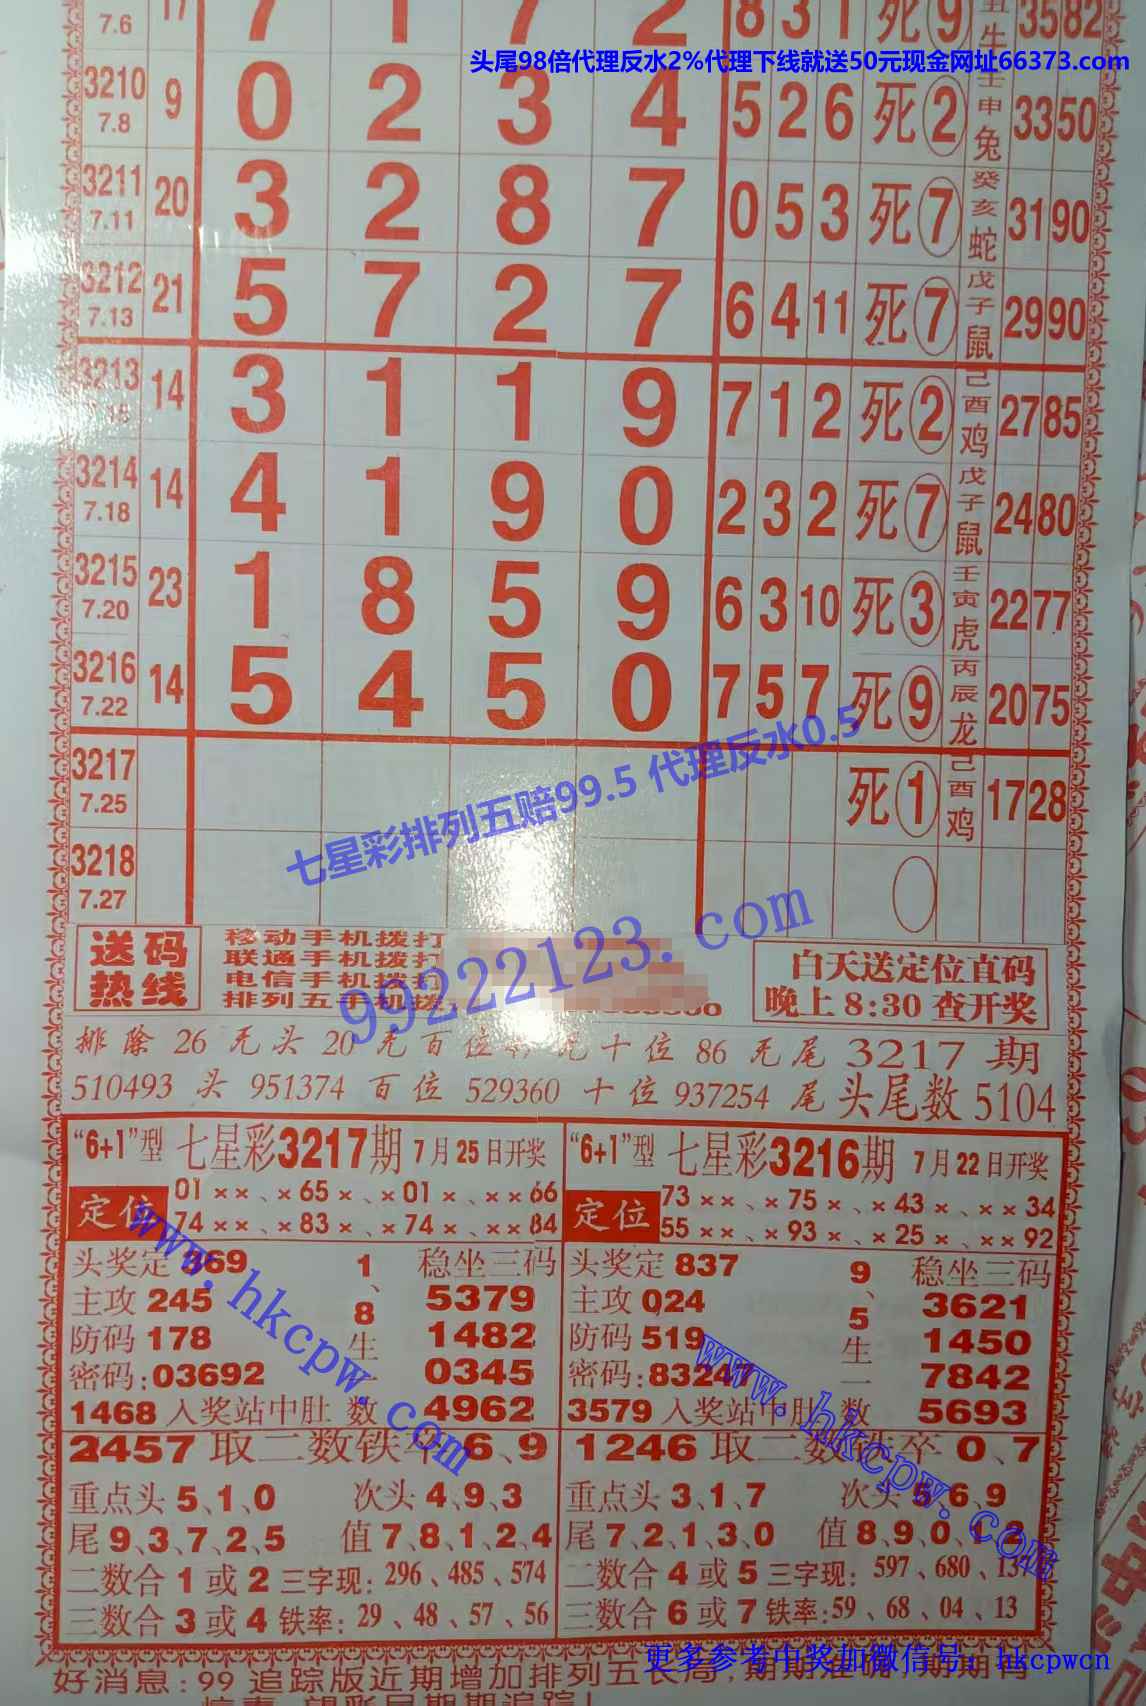 7.6 17 7 1 7 2 8 3 1 死 9 丑 牛 35 82
头尾98倍代理反水2%代理下线就送50元现金网址66373.com
3210 7.8 9 0 2 3 4 5 2 6 死 2 壬申 兔 33 50
3211 7.11 20 3 2 8 7 0 5 3 死 7 癸亥 蛇 31 90
3212 7.13 21 5 7 2 7 6 4 11 死 7 戊子 鼠 29 90
3213 14 3 1 1 9 7 1 2 死 2 己酉 鸡 27 85
3214 7.18 14 4 1 9 0 2 3 2 死 7 戊子 鼠 24 80
3215 7.20 23 1 8 5 9 6 3 10 死 3 壬寅 虎 22 77
3216 7.22 14 5 4 5 0 7 5 7 死 9 丙辰 龙 20 75
3217 7.25 死 1 己酉 鸡 17 28
七星彩排列五赔99.5 代理反水0.5
3218 7.27
99222123.com
送码 热线
移动手机拨打
联通手机拨打
电信手机拨打
排列五手机拨
白天送定位直码
晚上 8:30 查开奖
排除 26 无头 20 无百位 无十位 86 无尾 3217 期
510493 头 951374 百位 529360 十位 937254 尾 头尾数 5104
“6+1”型 七星彩3217期 7月25日开奖
定位
01××、×65×、×01×、××66
74××、×83×、×74×、××84
头奖定 369
主攻 245
防码 178
密码:03692
1468 入奖站中肚
1、8生一数
稳坐三码
5379
1482
0345
4962
2457 取二数铁卒 6、9
重点头 5、1、0 次头 4、9、3
尾 9、3、7、2、5 值 7、8、1、2、4
二数合 1 或 2 三字现: 296、485、574
三数合 3 或 4 铁率: 29、48、57、56
“6+1”型 七星彩3216期 7月22日开奖
定位
73××、×75×、×43×、××34
55××、×93×、×25×、××92
头奖定 837
主攻 024
防码 519
密码:83247
3579 入奖站中肚
9、5生一数
稳坐三码
3621
1450
7842
5693
1246 取二数铁卒 0、7
重点头 3、1、7 次头 5、6、9
尾 7、2、1、3、0 值 8、9、0、1、2
二数合 4 或 5 三字现: 597、680、13
三数合 6 或 7 铁率:59、68、04、13
www.hkcpw.com
www.hkcpw.com
更多参考中奖加微信号：hkcpwcn
好消息:99 追踪版近期增加排列五长局,期期